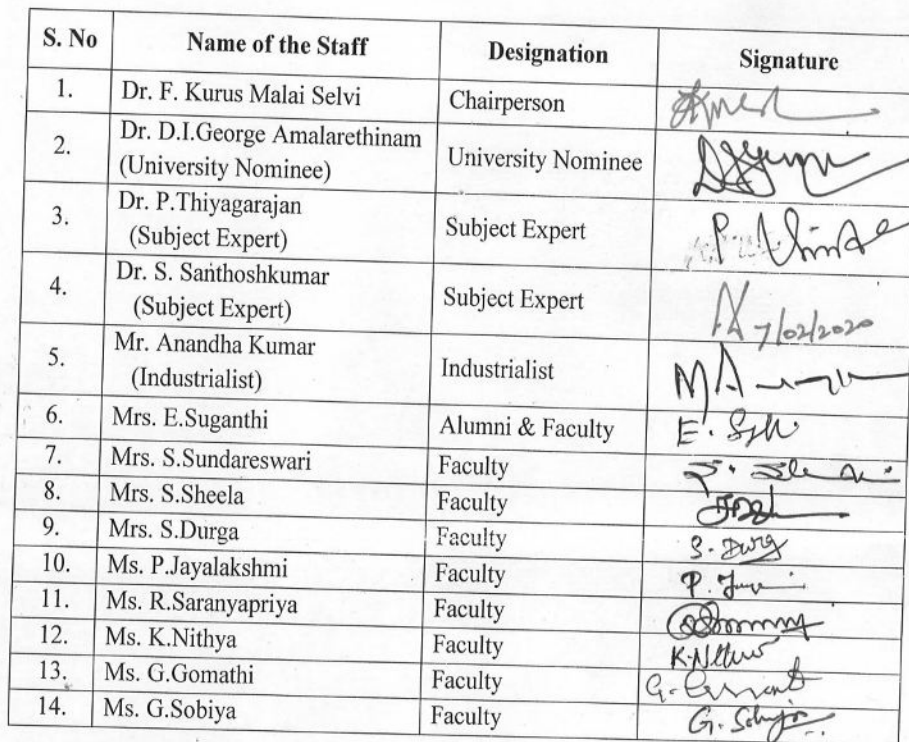 S. No Name of the Staff Designation Signature
1. Dr. F. Kurus Malai Selvi Chairperson
2. Dr. D.I.George Amalarethinam
(University Nominee) University Nominee
3. Dr. P.Thiyagarajan
(Subject Expert) Subject Expert P
4. Dr. S. Santhoshkumar
(Subject Expert) Subject Expert 7/02/2020
5. Mr. Anandha Kumar
(Industrialist) Industrialist
6. Mrs. E.Suganthi Alumni & Faculty E.
7. Mrs. S.Sundareswari Faculty
8. Mrs. S.Sheela Faculty
9. Mrs. S.Durga Faculty S. Durg
10. Ms. P.Jayalakshmi Faculty P.
11. Ms. R.Saranyapriya Faculty
12. Ms. K.Nithya Faculty
13. Ms. G.Gomathi Faculty G.
14. Ms. G.Sobiya Faculty G.